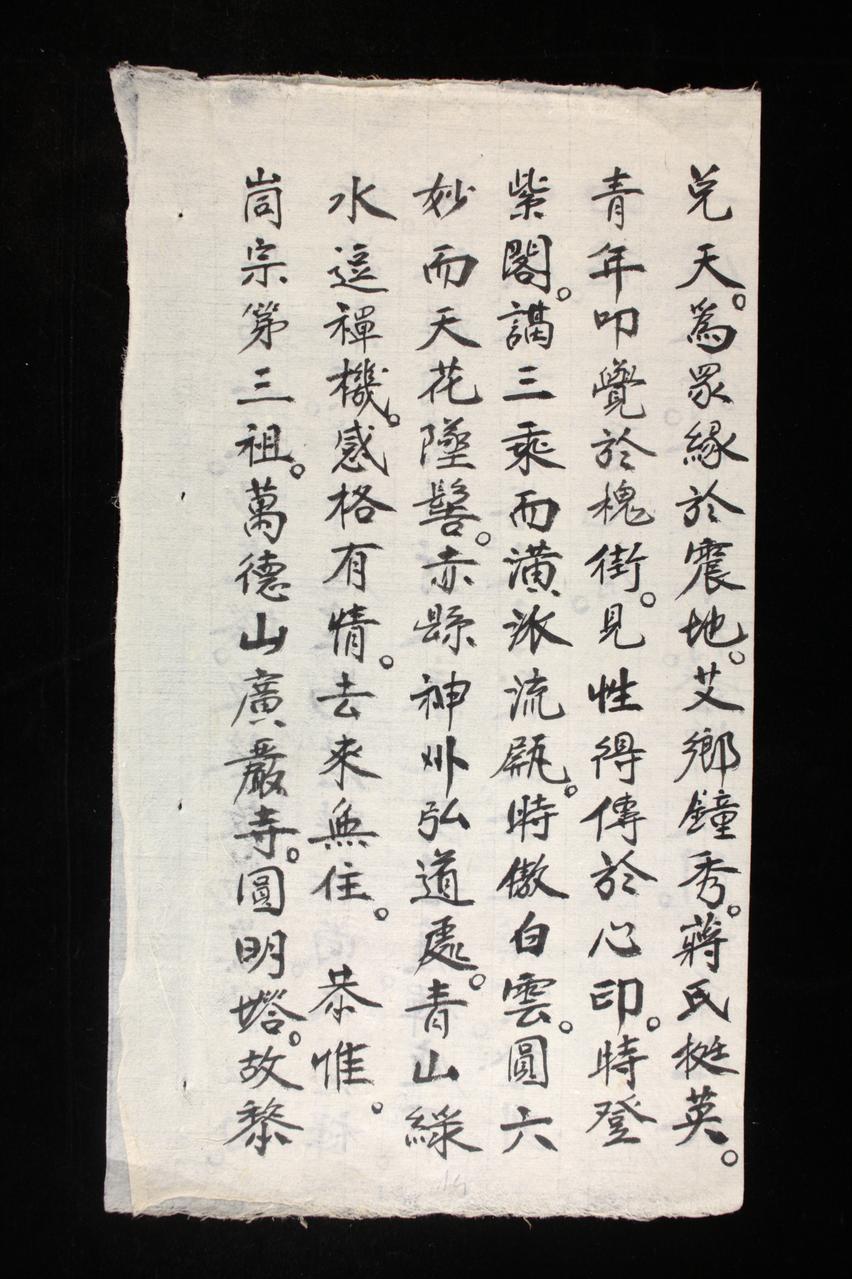 兌天。爲眾緣於震地。艾鄉鐘秀。蔣氏挺英。
青年叩覺於槐街。見性得傳於心印。時登
紫閣。講三乘而潢派流瓺。時傲白雲。圓六
妙而天花墜髻。赤縣神州弘道處。青山綠
水這禪機。感格有情。去來無住。恭惟。
峝宗第三祖。萬德山廣嚴寺。圓明塔。故黎